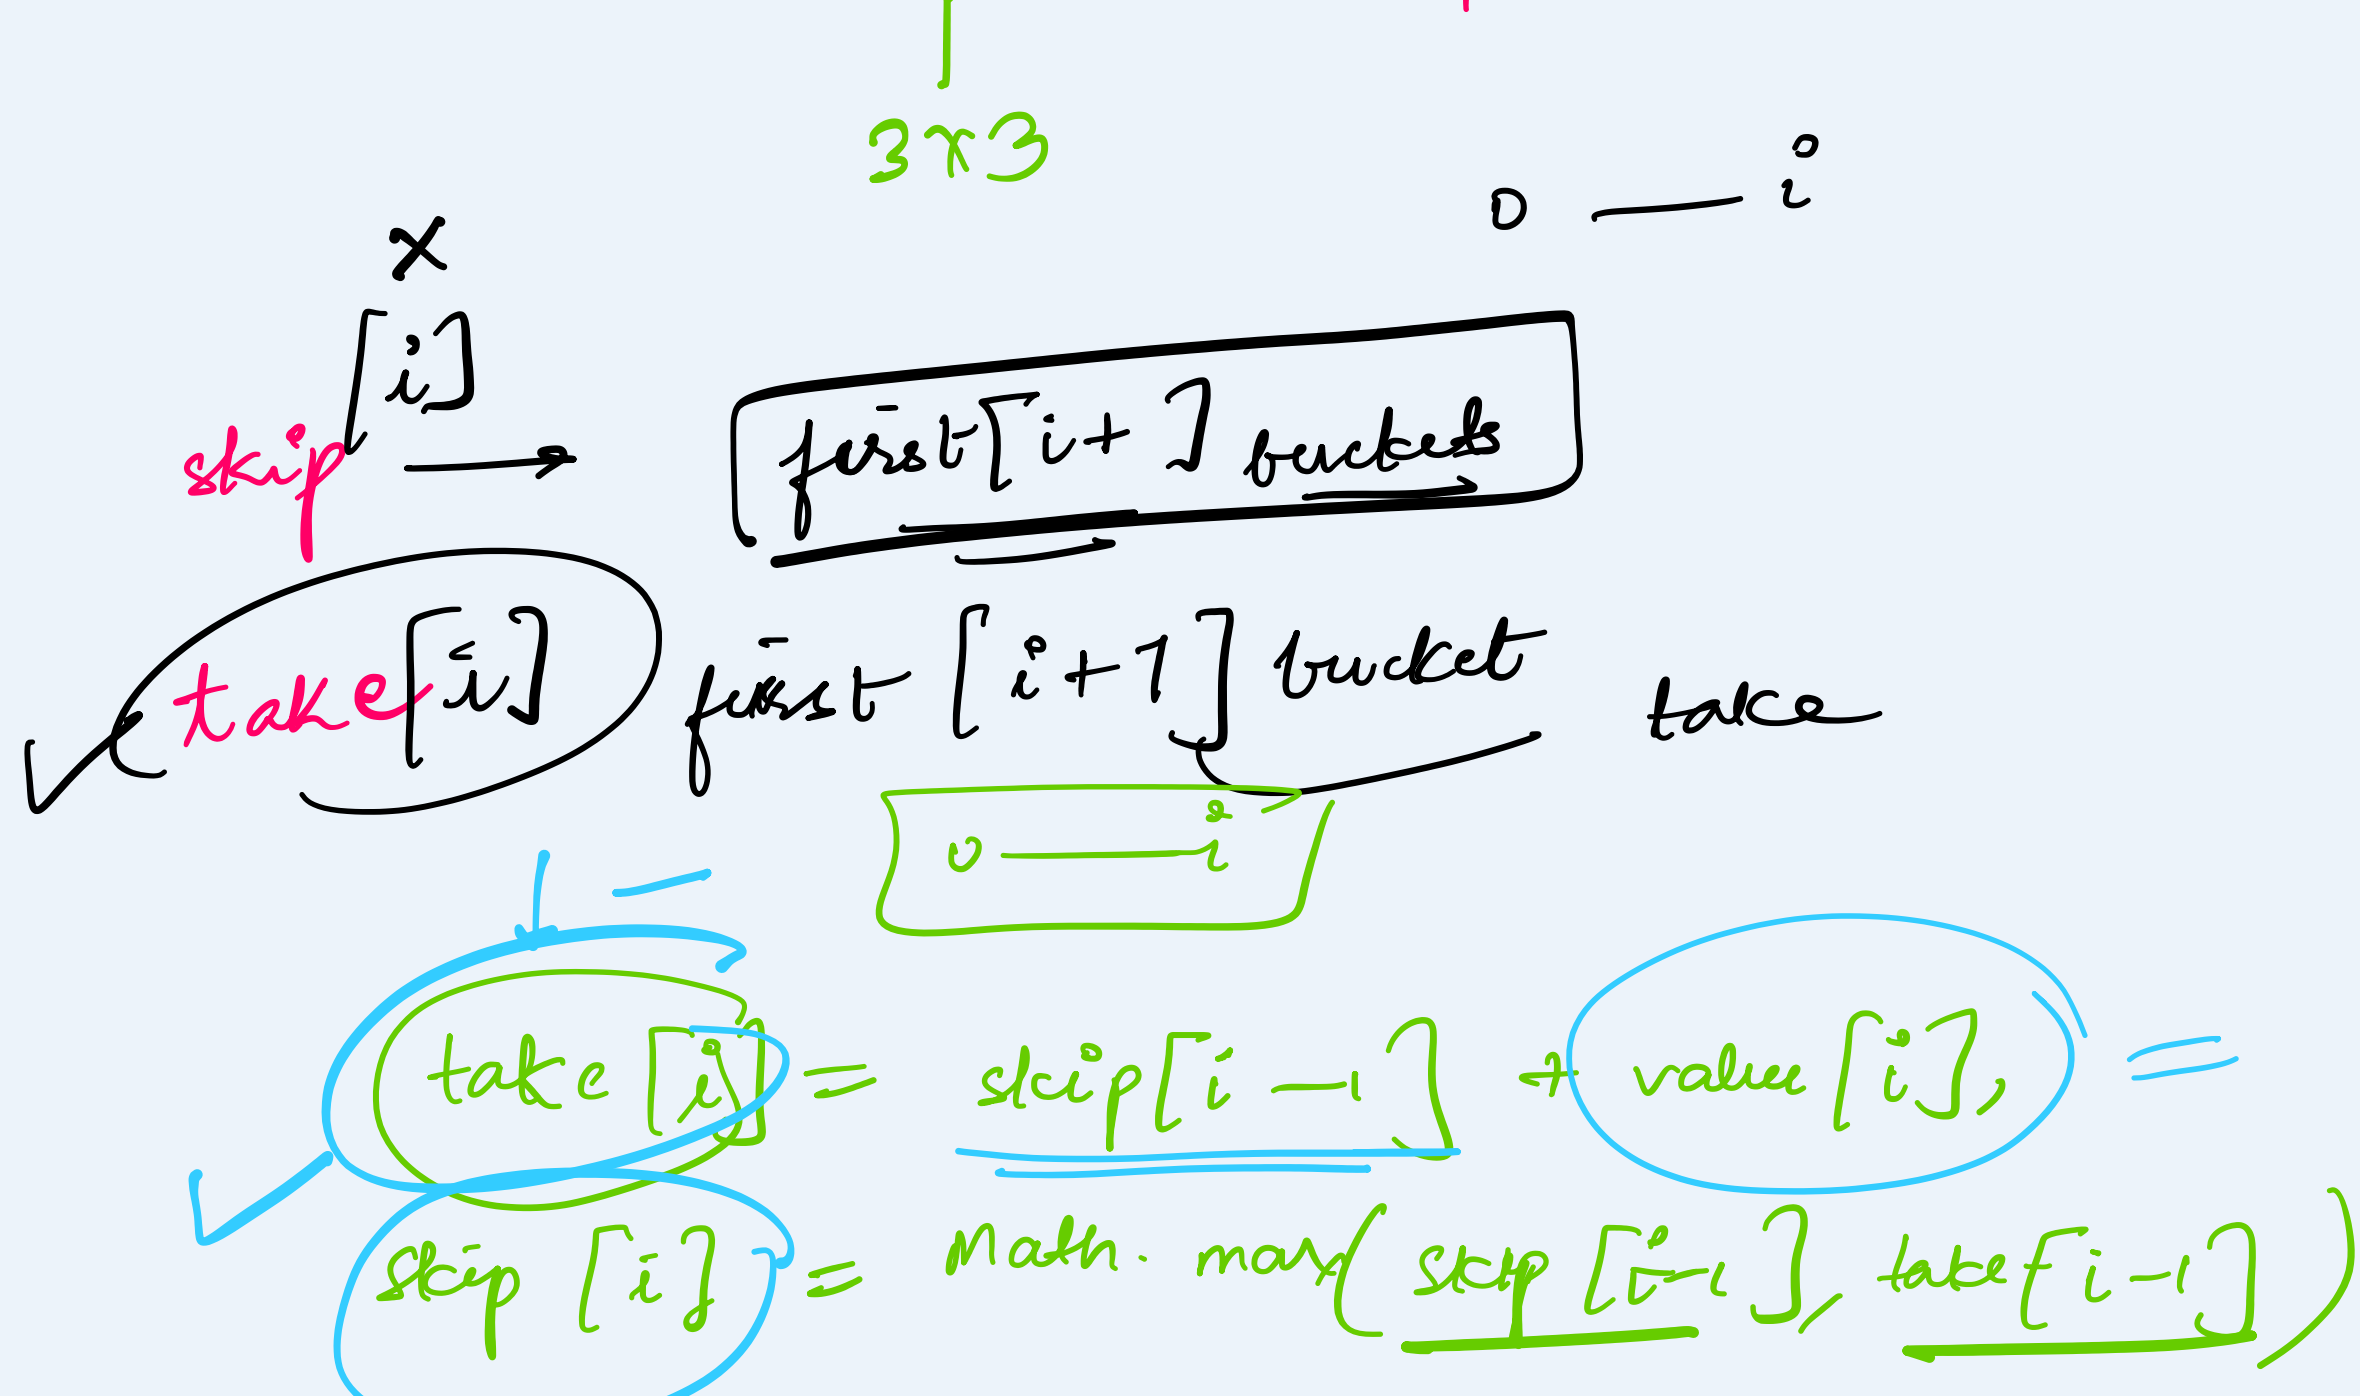 3x3
0 — i
x
skip[i] → first[i+ ] buckets
take[i] first [i+1] bucket take
0 — i
take[i] = skip[i-1] + value[i], =
skip[i] = Math.max(skip[i-1], take[i-1])